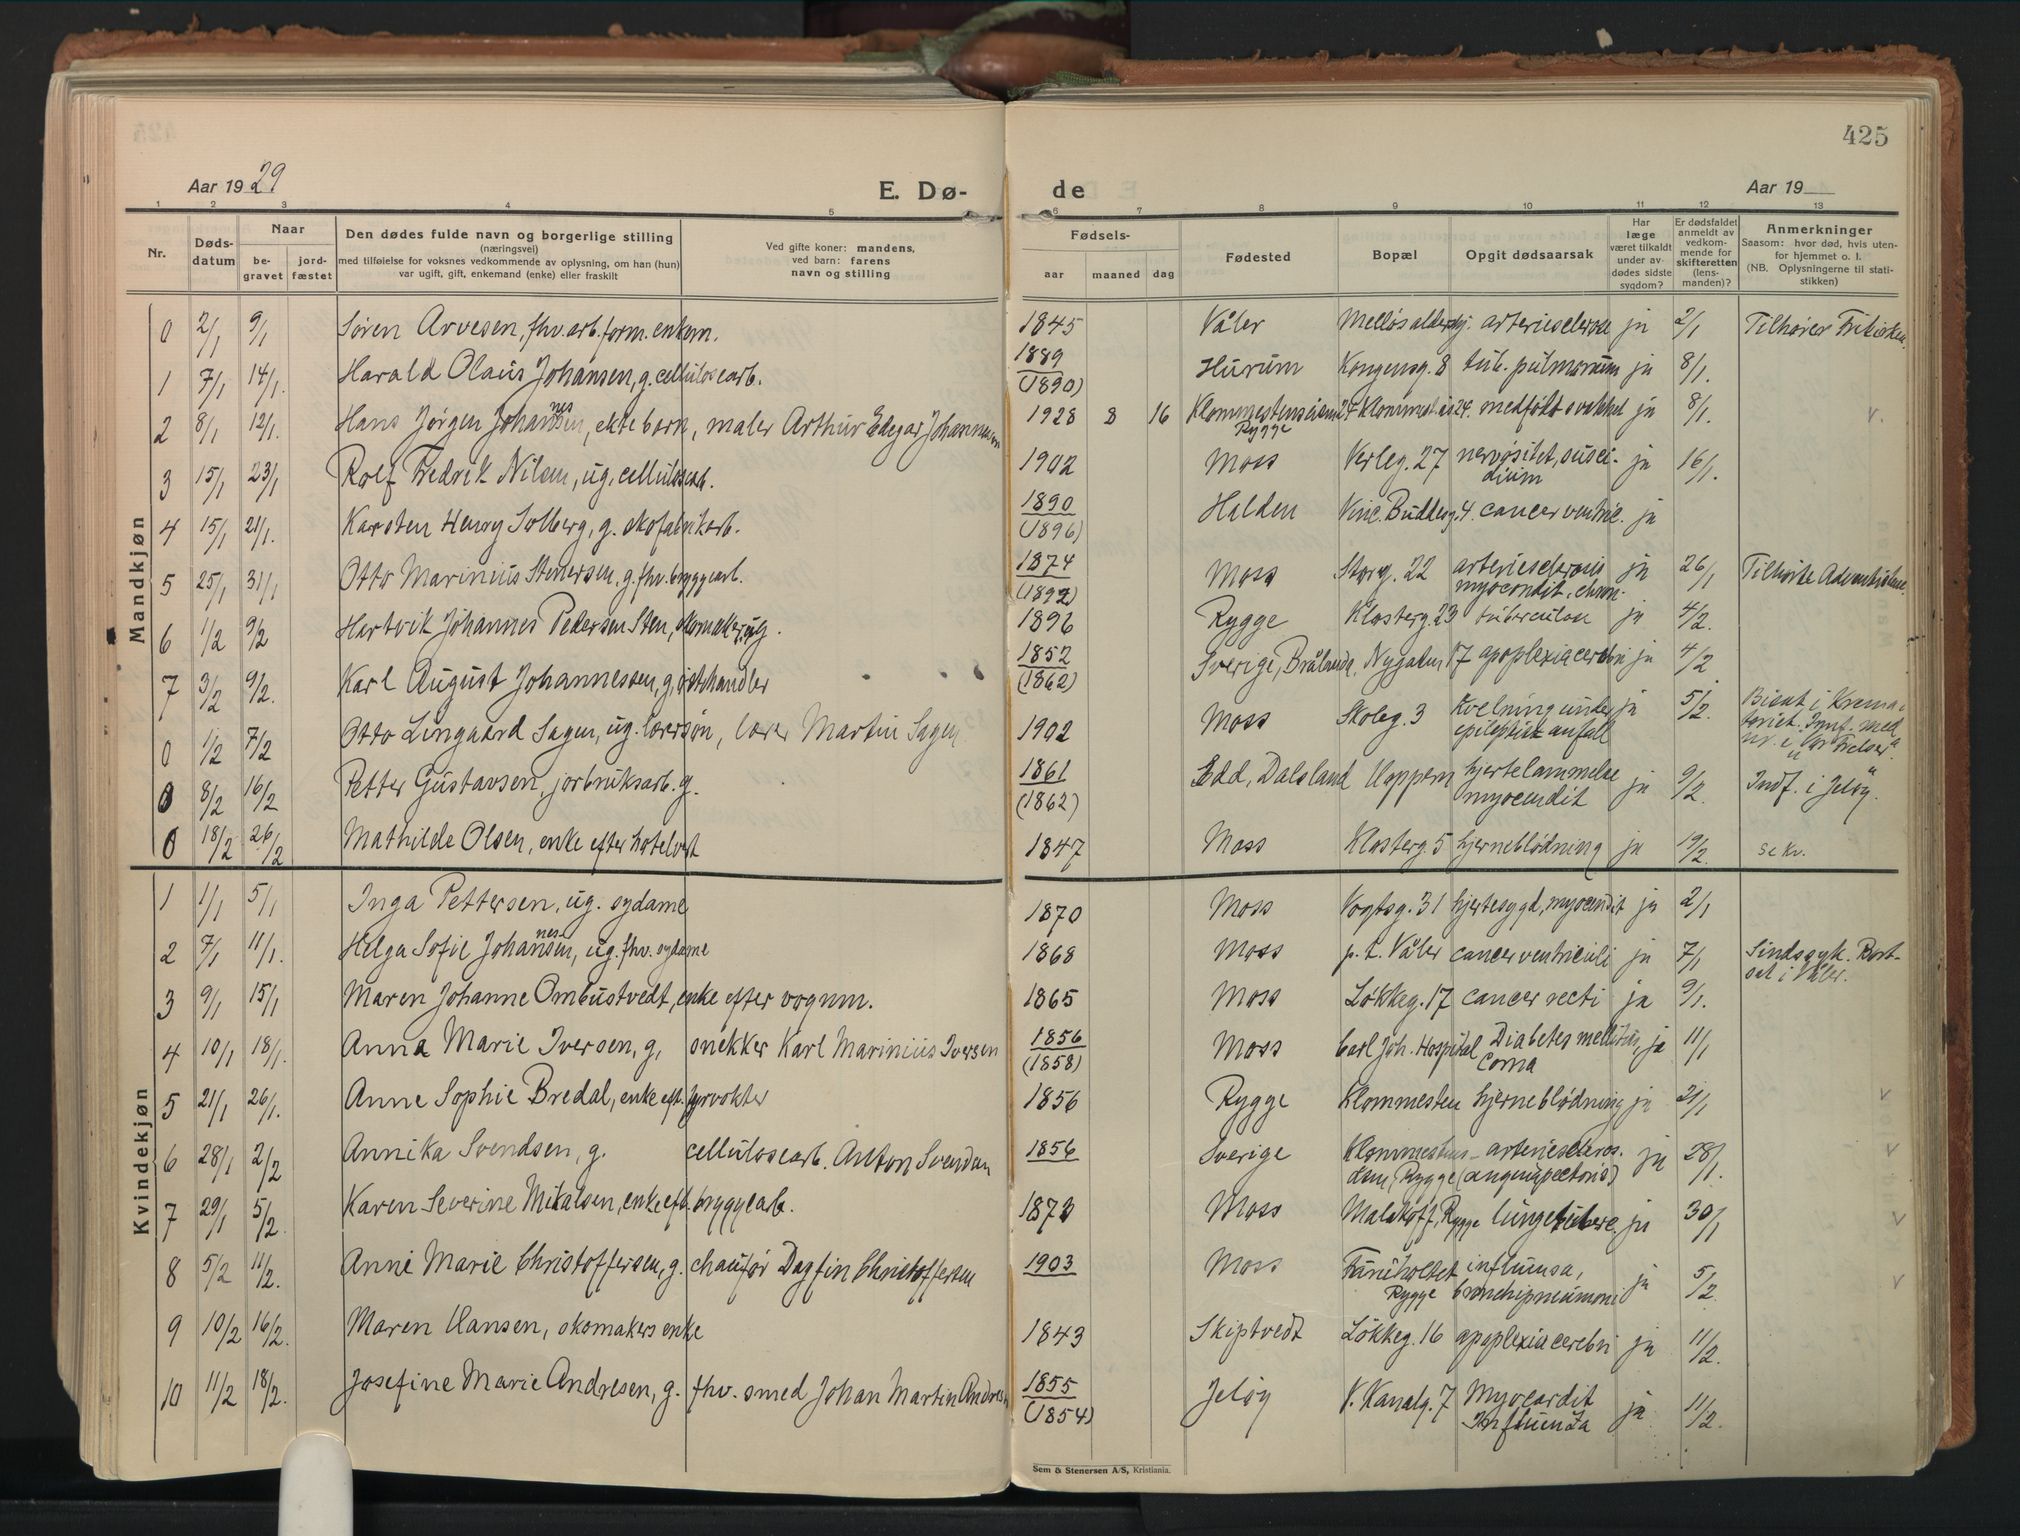 425
Aar 1929 E. Dø- de Aar 19
1 2 3 4 5 6 7 8 9 10 11 12 13
Nr. Døds-datum Naar begravet jordfæstet Den dødes fulde navn og borgerlige stilling (næringsvei) med tilføielse for voksnes vedkommende av oplysning, om han (hun) var ugift, gift, enkemand (enke) eller fraskilt Ved gifte koner: mandens, ved barn: farens navn og stilling Fødsels- aar maaned dag Fødested Bopæl Opgit dødsaarsak Har læge været tilkaldt under avdødes sidste sygdom? Er dødsfaldet anmeldt av vedkommende for skifteretten (lensmanden)? Anmerkninger Saasom: hvor død, hvis utenfor hjemmet o. l. (NB. Oplysningerne til statistikken)
Mandkjøn
0 2/1 9/1 Søren Arvesen, fhv. arb. form. enkem. 1845 Våler Melløs aldershj. arteriesclerose ja 2/1 Tilhører Frikirken
1 7/1 14/1. Harald Olaus Johansen, g. cellulosearb. 1889 (1890) Hurum Kongensg. 8 tub. pulmonum ja 8/1.
2 8/1 12/1. Hans Jørgen Johannesen, ekte barn, maler Arthur Edgar Johannesen 1928 8 16 Klommestensåsen 24 Rygge Klommest. ås 24. medfødt svakhet ja 8/1. v.
3 15/1 23/1 Rolf Fredrik Nilsen, ug. cellulosearb. 1902 Moss Verleg. 27 nervøsitet, suicidium ja 16/1.
4 15/1 21/1. Karsten Henry Solberg, g. skofabrikarb. 1890 (1896) Halden Vinc. Buddesg. 4. cancer ventric. ja
5 25/1 31/1 Otto Marinius Stenersen, g. fhv. bryggearb. 1874 (1892) Moss Storg. 22 arteriesclerosis myocondit. chron. ja 26/1 Tilhørte Adventistene.
6 1/2 9/2 Hartvik Johannes Pedersen Sten, skomaker, ug. 1896 Rygge Klosterg. 23 tuberculose ja 4/2.
7 3/2 9/2. Karl August Johannessen, g, handler 1852 (1862) Sverige, Nygaten 17 apoplexia cerebri ja 4/2
0 1/2 7/2 Otto Lingaard Sagen, ug. lærersøn, lærer Martin Sagen 1902 Moss Skoleg. 3 Kvelning under epileptisk anfall ja 5/2. Bisat i Krematoriet. Innf. med nr. i Vår Frelser's
0 8/2 16/2 Petter Gustavsen, jorbruksarb. g. 1861 (1862) Edd, Dalsland Noppern hjertelammelse myocardit ja 9/2. Indf. i Jeløy.
0 18/2 26/2 Mathilde Olsen, enke efter hotelvert 1847 Moss Klosterg. 5 hjerneblödning ja 19/2. se Kv.
Kvindekjøn
1 1/1 5/1 Inga Pettersen, ug. sydame 1870 Moss Vogtsg. 31 hjertesygd, myocardit ja 2/1
2 7/1 11/1. Helga Sofie Johannesen, ug. fhv. sydame 1868 Moss p. t. Våler cancer ventriculi ja 7/1 Sindssyk. Bortsat i Våler.
3 9/1 15/1 Maren Johanne Ombustvedt, enke efter vognm. 1865 Moss Løkkeg. 17 cancer recti ja 9/1.
4 10/1 18/1. Anna Marie Iversen, g, snekker Karl Marinius Iversen 1856 (1858) Moss Carl Joh. Hospital Diabetes mellitus, Coma ja 11/1
5 21/1 26/1. Anne Sophie Bredal, enke eft. fyrvokter 1856 Rygge Klommesten hjerneblødning ja 21/1 v
6 28/1 2/2 Annika Svendsen, g. cellulosearb. Anton Svendsen 1856 Sverige Klommesten- Rygge arteriescleros. (angina pectoris) ja 28/1. v
7 29/1 5/2. Karen Severine Mikalsen, enke eft. bryggearb. 1873 Moss Malakoff, Rygge lungetuberc. ja 30/1 v
8 5/2 11/2. Anne Marie Christoffersen, g. chaufør Dagfin Christoffersen 1903 Moss Furuholtet Rygge influensa, bronchipneumoni ja 5/2. v
9 10/2 16/2. Maren Hansen, skomakers enke 1843 Skiptvedt Løkkeg. 16 apoplexia cerebri ja 11/2.
10 11/2 18/2. Josefine Marie Andresen, g. fhv. smed Johan Martin Andresen 1855 (1854) Jeløy V. Kanalg. 7 Myocardit Influenza ja 11/2.
Sem & Stenersen A/S, Kristiania.